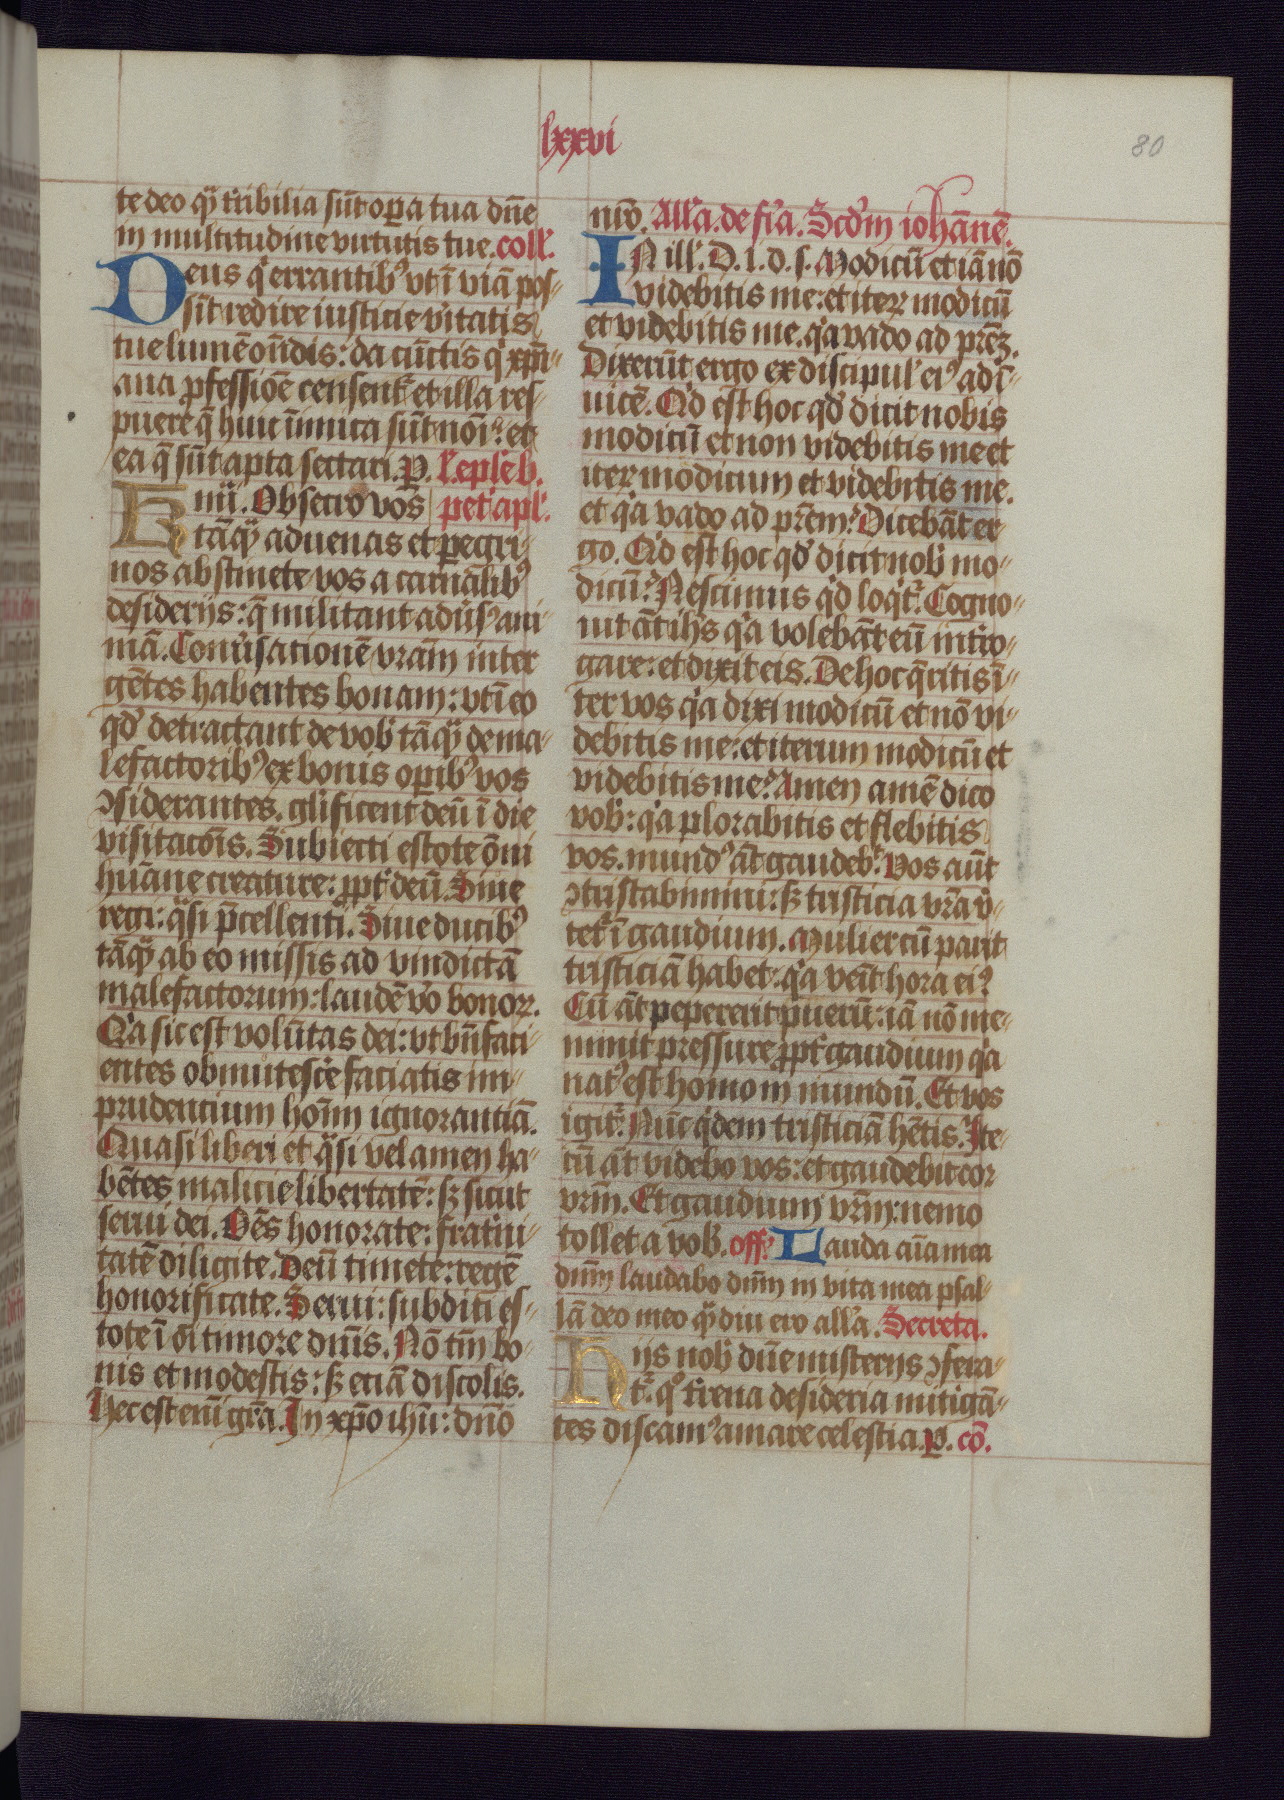 lxxvi
80
te deo qͣ̃ t̃ribilia sũt oꝑa tua dñe
in multitudine virtutis tue. coll̃.
Deus q̃ errantibꝰ vt ĩ viã pos-
sĩt redire iusticie v̾itatis
tue lumẽ oñdis: da cũctis q̃ xp̃i-
ana ꝓfessiõe censent̃ et illa res-
puere q̃ huic inimica sũt noĩ: et
ea q̃ sũt apta sectari. P. l̃. ep̃le b̃.
Kmi̋. Obsecro vos pet̃ apl̃.
tãqͣ̃ aduenas et ꝑegri-
nos abstinete vos a carnalibꝰ
desiderijs: q̃ militant adũsꝰ ani-
mã. Conũsationẽ vr̃am inter
gẽtes habentes bonam: vt ĩ eo
qd̃ detractant de vob̃ tãqͣ̃ de ma-
lefactoribꝰ ex bonis oꝑibꝰ vos
ꝯsiderantes. gl̃ificent deũ ĩ die
visitacõis. Subiecti estote õni
hũane creature: ꝓpt̃ deũ. Siue
regi: q̃si p̃cellenti. Siue ducibꝰ
tãqͣ̃ ab eo missis ad vindictã
malefactorum: laudẽ v̾o bonoꝝ.
Q̃a sic est volũtas dei: vt bñfaci-
entes obmutesc̾e faciatis im-
prudentium hoĩm ignorantiã.
Quasi liberi et q̃si velamen ha-
bẽtes malicie libertatẽ: sꝫ sicut
serui dei. Oẽs honorate: frat̾ni-
tatẽ diligite. Deũ timete: regẽ
honorificate. Serui: subditi es-
tote ĩ oĩ timore dñis. Nõ tm̃ bo-
nis et modestis: sꝫ eciã discolis.
Hec est eni̅ gr̃a. In xp̃o ihũ: dñõ
nr̃o. All̃a. de fr̃a. Scd̃m ioh̃annẽ.
IN ill̃. D. i. d. s. Modicũ et iã nõ
videbitis me: et iteꝝ modicũ
et videbitis me. q̃a vado ad pr̃eꝫ.
Dixerũt ergo ex discipul̃ eiꝰ ad ĩ-
uicẽ. Q̃d est hoc qd̃ dicit nobis
modicũ et non videbitis me et
iteꝝ modicum et videbitis me.
et q̃a vado ad pr̃em? Dicebãt er-
go. Q̃d est hoc qd̃ dicit nob̃ mo-
dicũ? Nescimus q̃d loq̃t̃. Cogno-
uit ãt ihs̃ q̃a volebãt eũ int̾ro-
gare: et dixit eis. De hoc q̃ritis ĩ-
ter vos q̃a dixi modicũ et nõ vi-
debitis me: et iterum modicũ et
videbitis me? Amen amẽ dico
vob̃: q̃a plorabitis et flebitis
vos. mundꝰ ãt gaudeb̃. Vos aũt
ꝯtristabimini: sꝫ tristicia vr̃a v̾-
tet̃ ĩ gaudium. Mulier cũ parit
tristiciã habet: q̃a veñit hora eiꝰ
Cũ ãt pepererit pueꝝ: iã nõ me-
minit pressure ꝓpt̃ gaudium q̃a
natꝰ est homo in mundũ. Et vos
igit̃. Nũc q̃dem tristiciã hẽtis. Ite-
rũ ãt videbo vos: et gaudebit cor
vr̃m. Et gaudium vr̃m: nemo
tollet a vob̃. off̃. Lauda aĩa mea
dñm laudabo dñm in vita mea psal-
lã deo meo qͣ̃diu ero all̃a. Secreta.
Hijs nob̃ dñe misterijs ꝯfera-
t̃. qꝰ t̾rena desideria mitigã-
tes discamꝰ amare celestia. P. cõ.